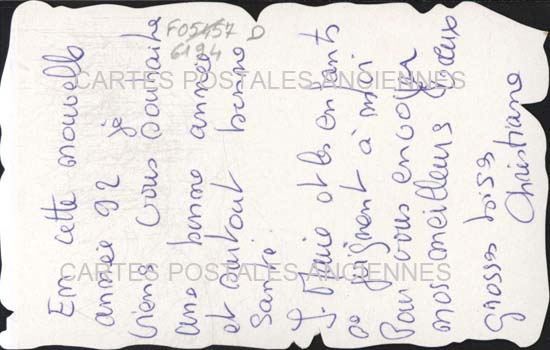 F05457 D
6194
CARTES POSTALES ANCIENNES
CARTES POSTALES ANCIENNES
En cette nouvelle
année 92 je
viens vous souhaiter
une bonne année
et surtout bonne
Santé.
J. Marie et les enfants
se joignent à moi
Pour vous envoyer
nos meilleurs voeux
grosses bises
Christiane